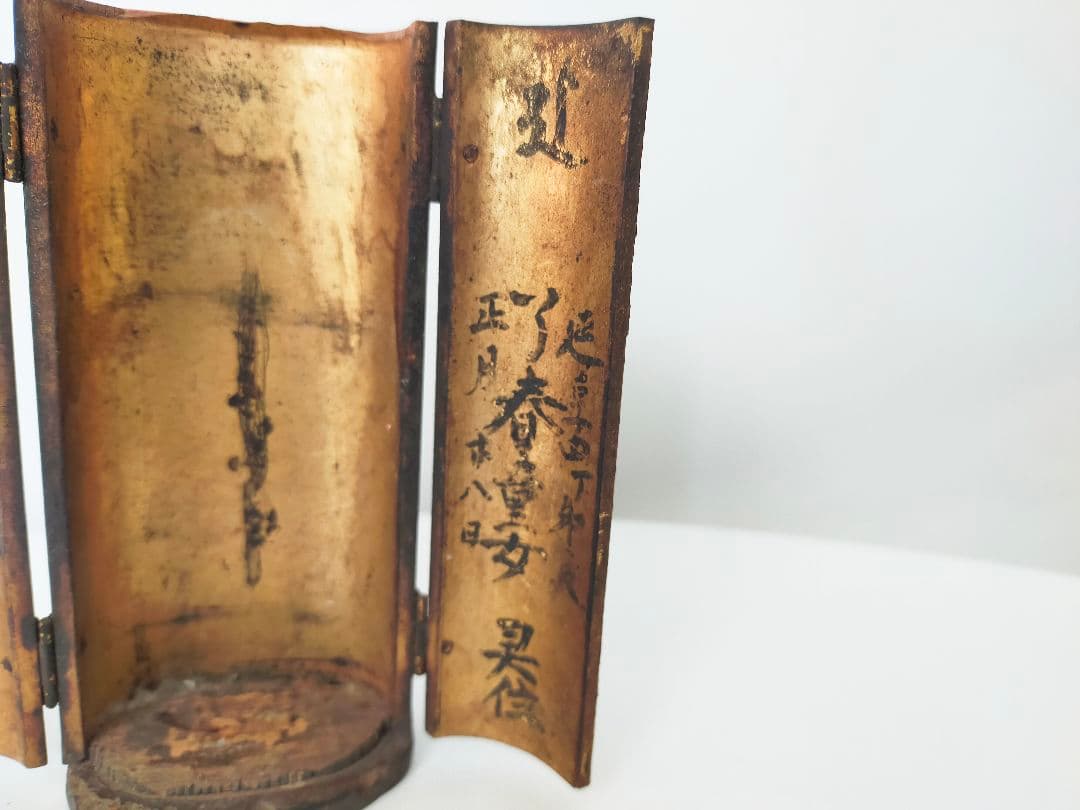 延享四丁卯天
了春童女 灵位
正月廿八日